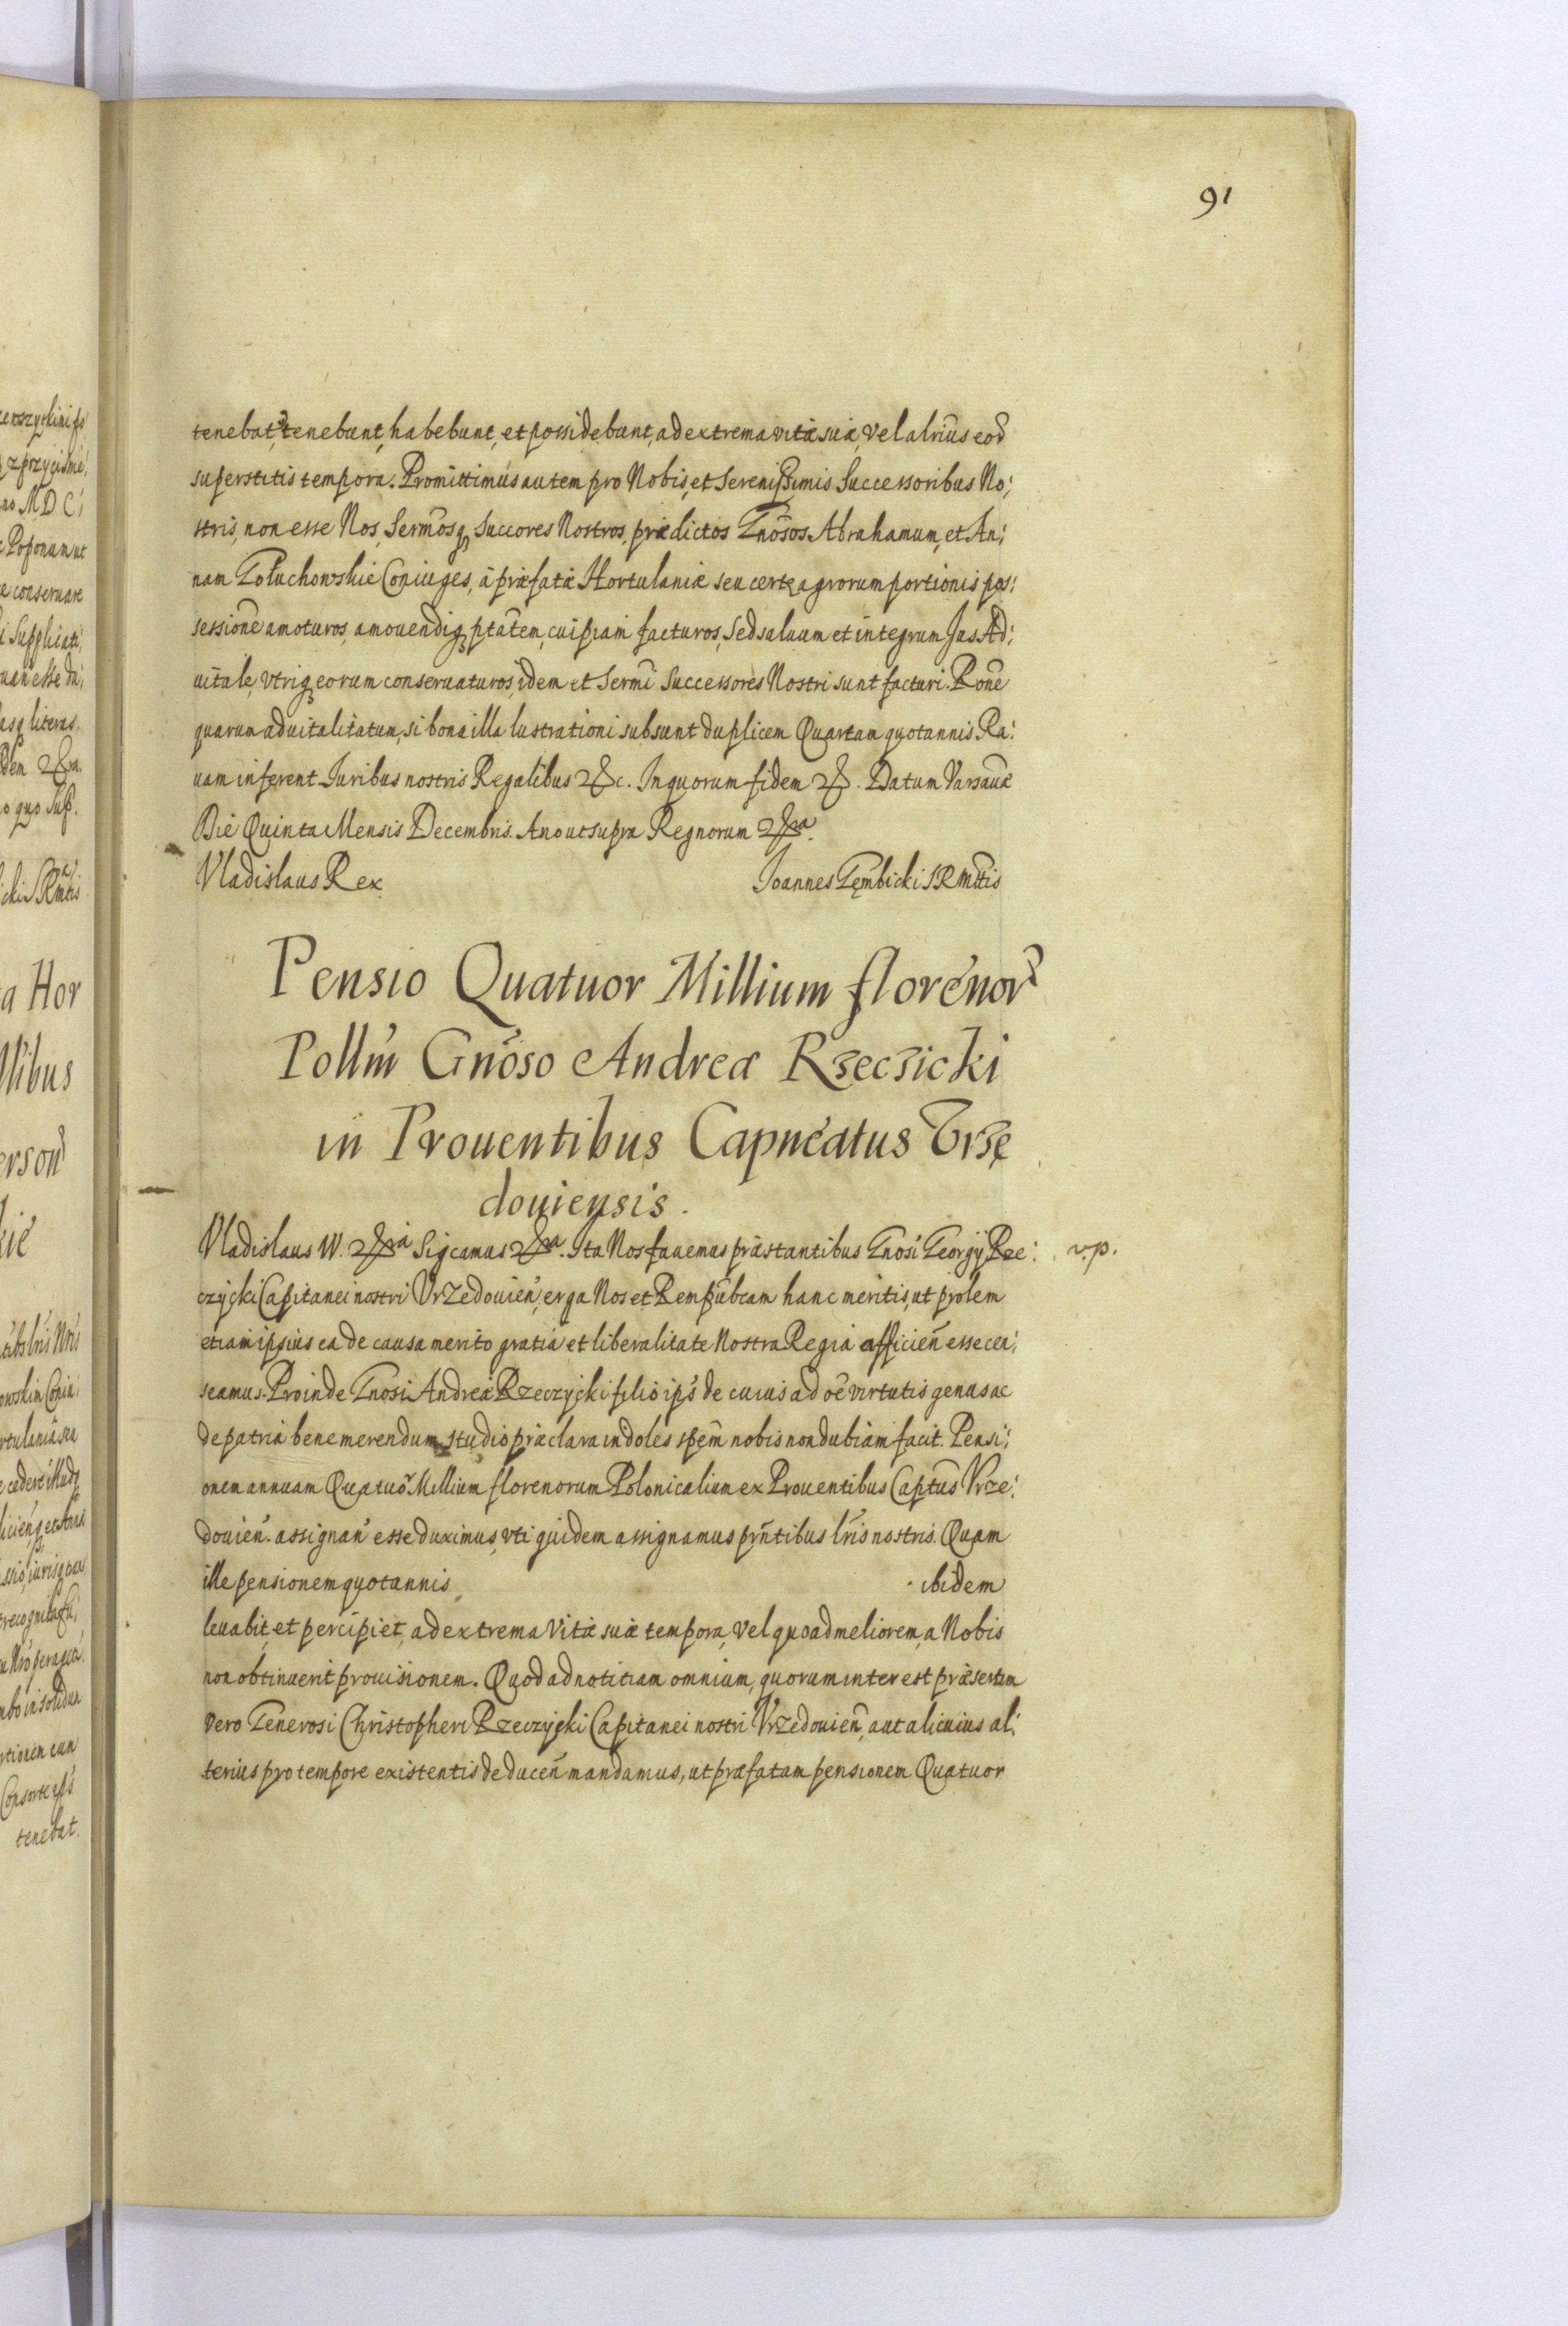 91
tenebat, tenebunt, habebunt, et possidebunt, ad extrema vitæ suæ, vel alrius eor̃
superstitis tempora. Promittimus autem pro Nobis, et Serenissimis Successoribus No:
stris, non esse Nos, Sermõsq Succores Nostros, prædictos Gnõsos Abrahamum, et An:
nam Goluchowskie Coniuges, à præfatæ Hortulaniæ seu certę agrorum portionis pos:
sessione amoturos, amouendiq ptãtem, cuipiam facturos, Sed saluum et integrum Jus Ad:
uitale, vtriq eorum conseruaturos, idem et Sermi Successores Nostri sunt facturi. Rone
quarum aduitalitatum, si bona illa lustrationi subsunt duplicem Quartam quotannis Ra:
uam inferent. Iuribus nostris Regalibus &c. In quorum fidem &. Datum Varsauæ
Die Quinta Mensis Decembris. Ano ut supra Regnorum &ra.
Vladislaus Rex Joannes Gębicki S R Mttis
Pensio Quatuor Millium florenor̃
Pollm̃ Gnõso Andreæ Rzeczicki
in Prouentibus Capneatus Vrzę
douiensis.
Vladislaus IV. &ra Sigcamus &ra. Ita Nos fauemus præstantibus Gnosi Georgÿ Rze: v.p.
czÿcki Capitanei nostri Vrzedouien̄, erga Nos et Rempubcam hanc meritis, ut prolem
etiam ipsius ea de causa merito gratia et liberalitate Nostra Regia afficien̄ esse cen:
seamus. Proinde Gnosi Andreæ Rzeczycki filio ips̃ de cuius ad oẽ virtutis genus ac
de patria bene merendum studio præclara indoles spem̄ nobis non dubiam facit. Pensi:
onem annuam Quatuor Millium florenorum Polonicalium ex Prouentibus Captus̄ Vrze:
douien̄. assignan̄ esse duximus, vti quidem assignamus pñtibus lr̃is nostris. Quam
ille pensionem quotannis ibidem
leuabit, et percipiet, ad extrema Vitæ suæ tempora, Vel quoad meliorem, a Nobis
non obtinuerit prouisionem. Quod ad notitiam omnium, quorum interest præsertim
vero Generosi Christopheri Rzeczycki Capitanei nostri Vrzedouien̄, aut alicuius al:
terius pro tempore existentis deducen̄ mandamus, ut præfatam pensionem Quatuor